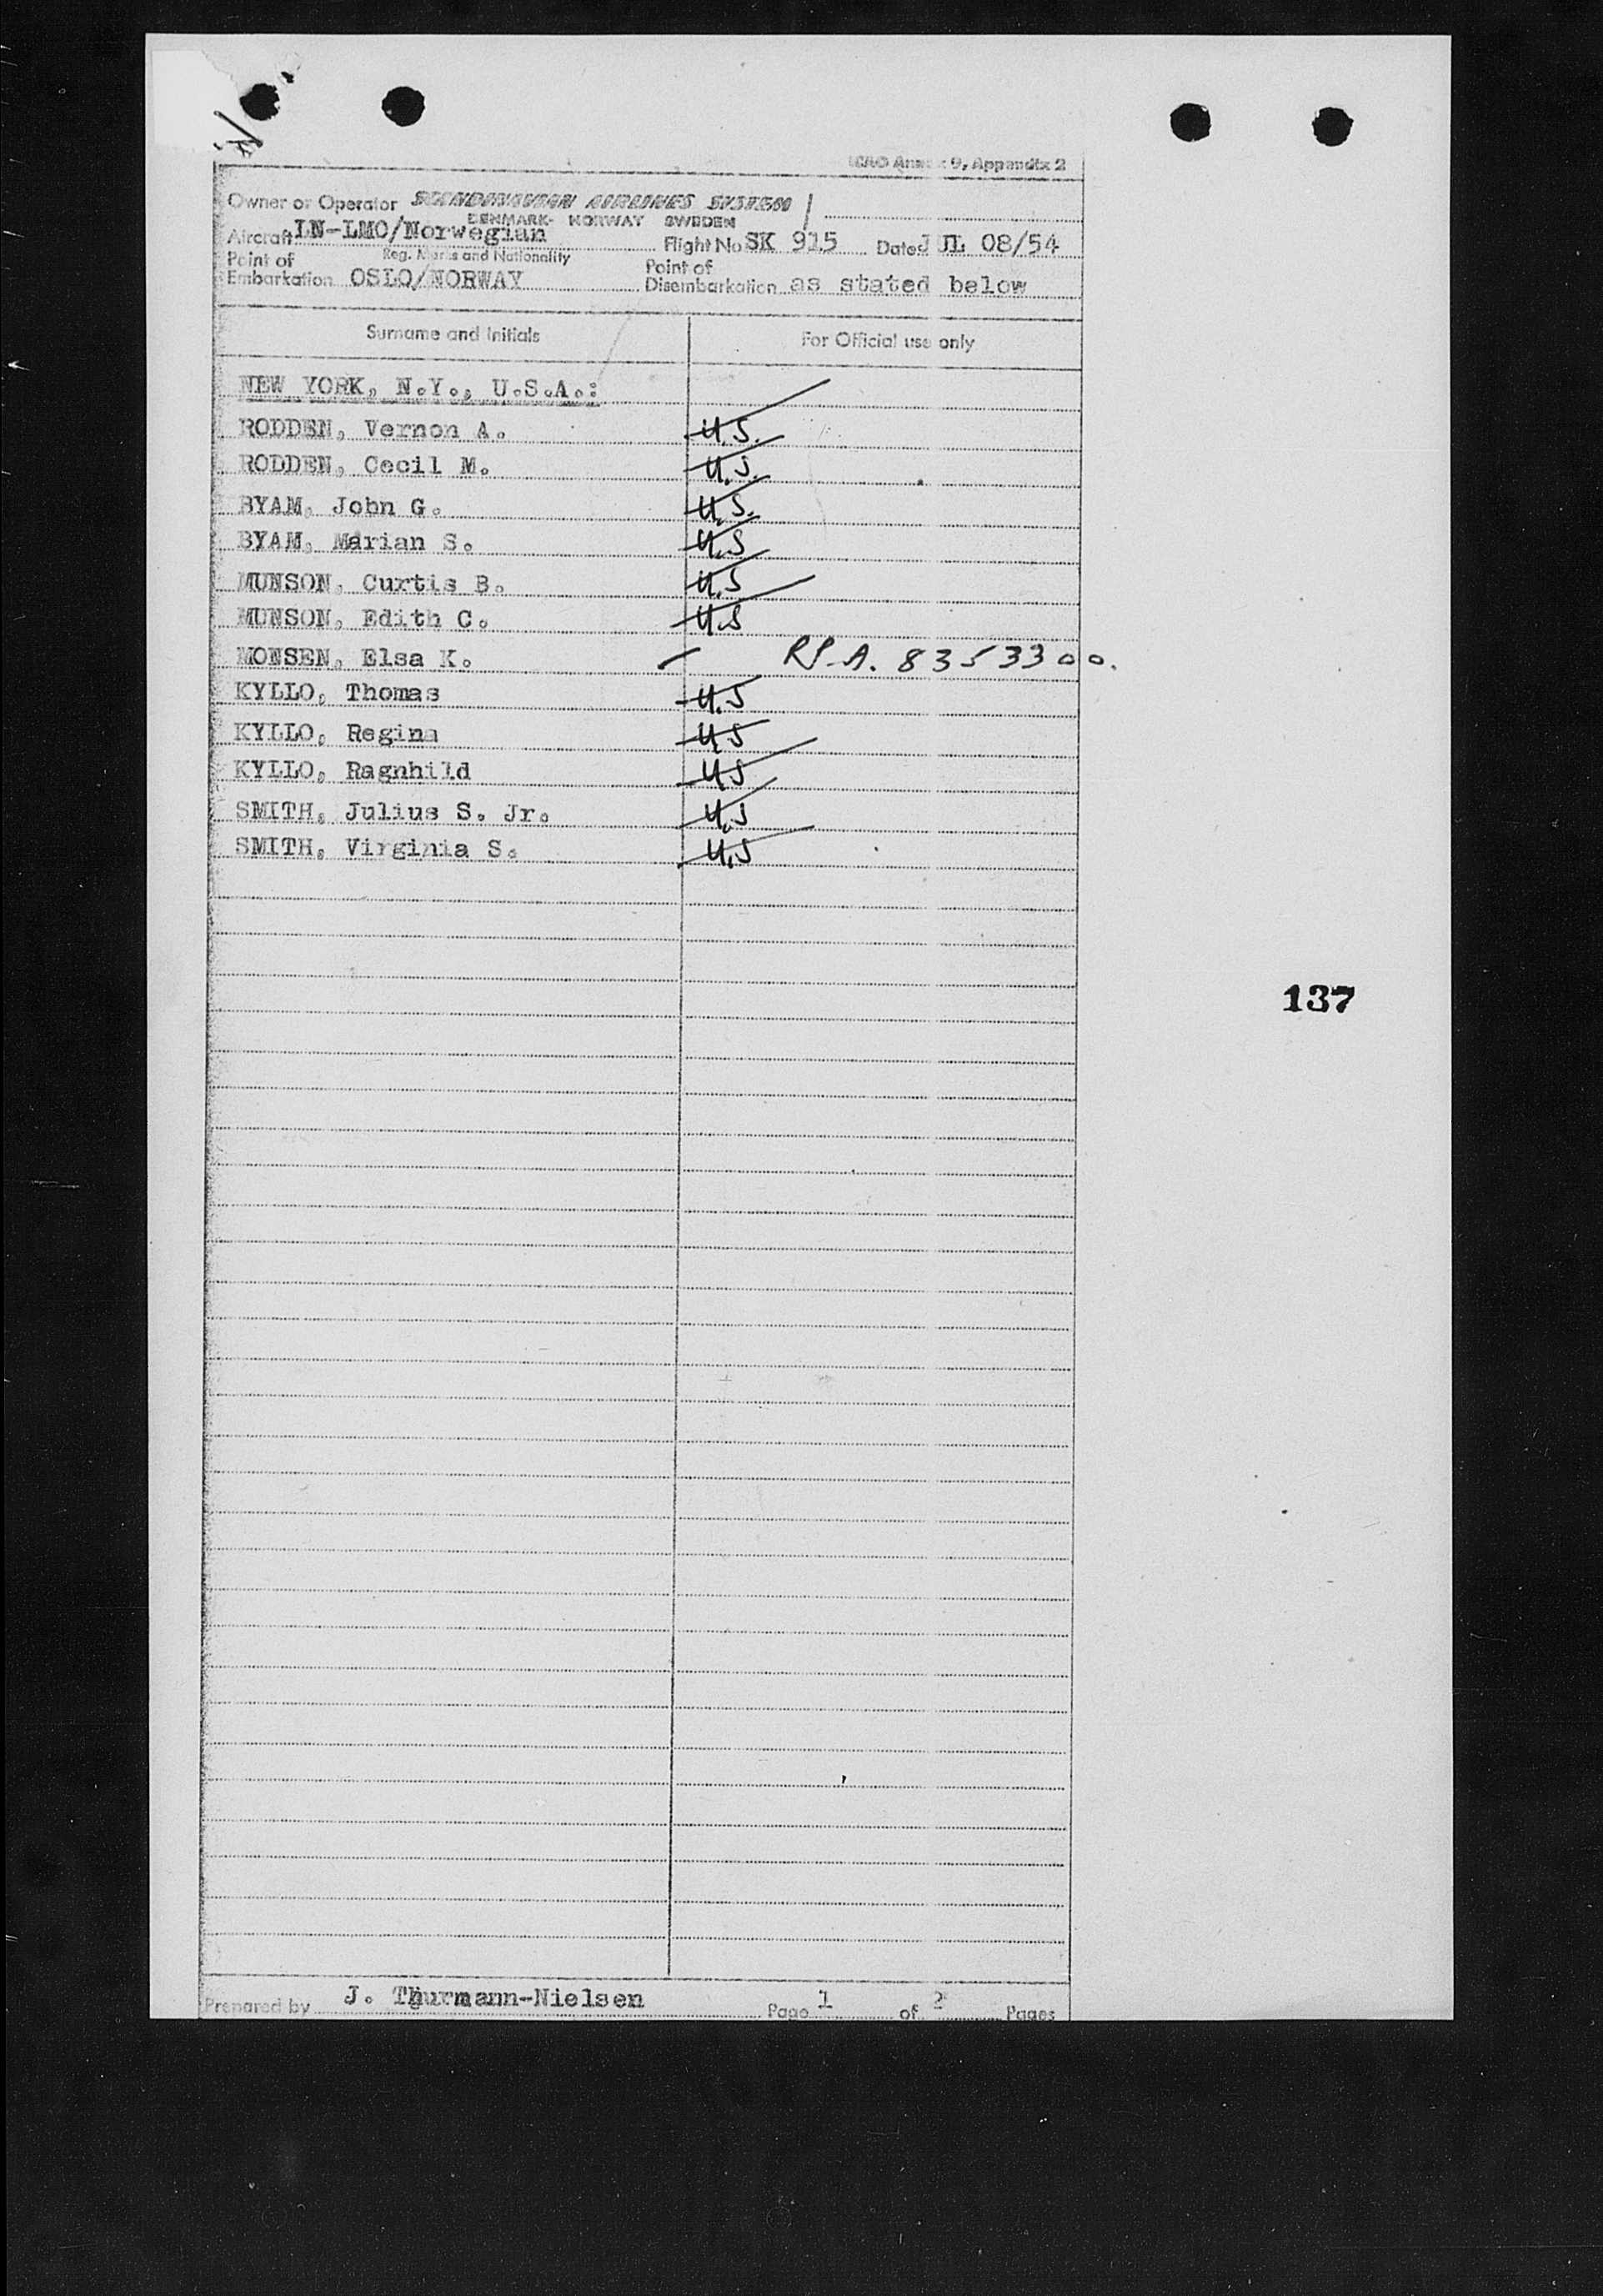 ICAO Annex 9, Appendix 2
Owner or Operator SCANDINAVIAN AIRLINES SYSTEM
DENMARK- NORWAY SWEDEN
Aircraft LN-LMO/Norwegian Flight No SK 915 Date JUL 08/54
Reg. Marks and Nationality
Point of Embarkation OSLO/NORWAY Point of Disembarkation as stated below
Surname and Initials For Official use only
NEW YORK, N.Y., U.S.A.:
RODDEN, Vernon A. U.S.
RODDEN, Cecil M. U.S.
BYAM, John G. U.S.
BYAM, Marian S. U.S
MUNSON, Curtis B. U.S
MUNSON, Edith C. U.S
MONSEN, Elsa K. RP. A. 8353300.
KYLLO, Thomas U.S
KYLLO, Regina US
KYLLO, Ragnhild US
SMITH, Julius S. Jr. U.S
SMITH, Virginia S. U.S
137
Prepared by J. Thurmann-Nielsen Page 1 of 2 Pages